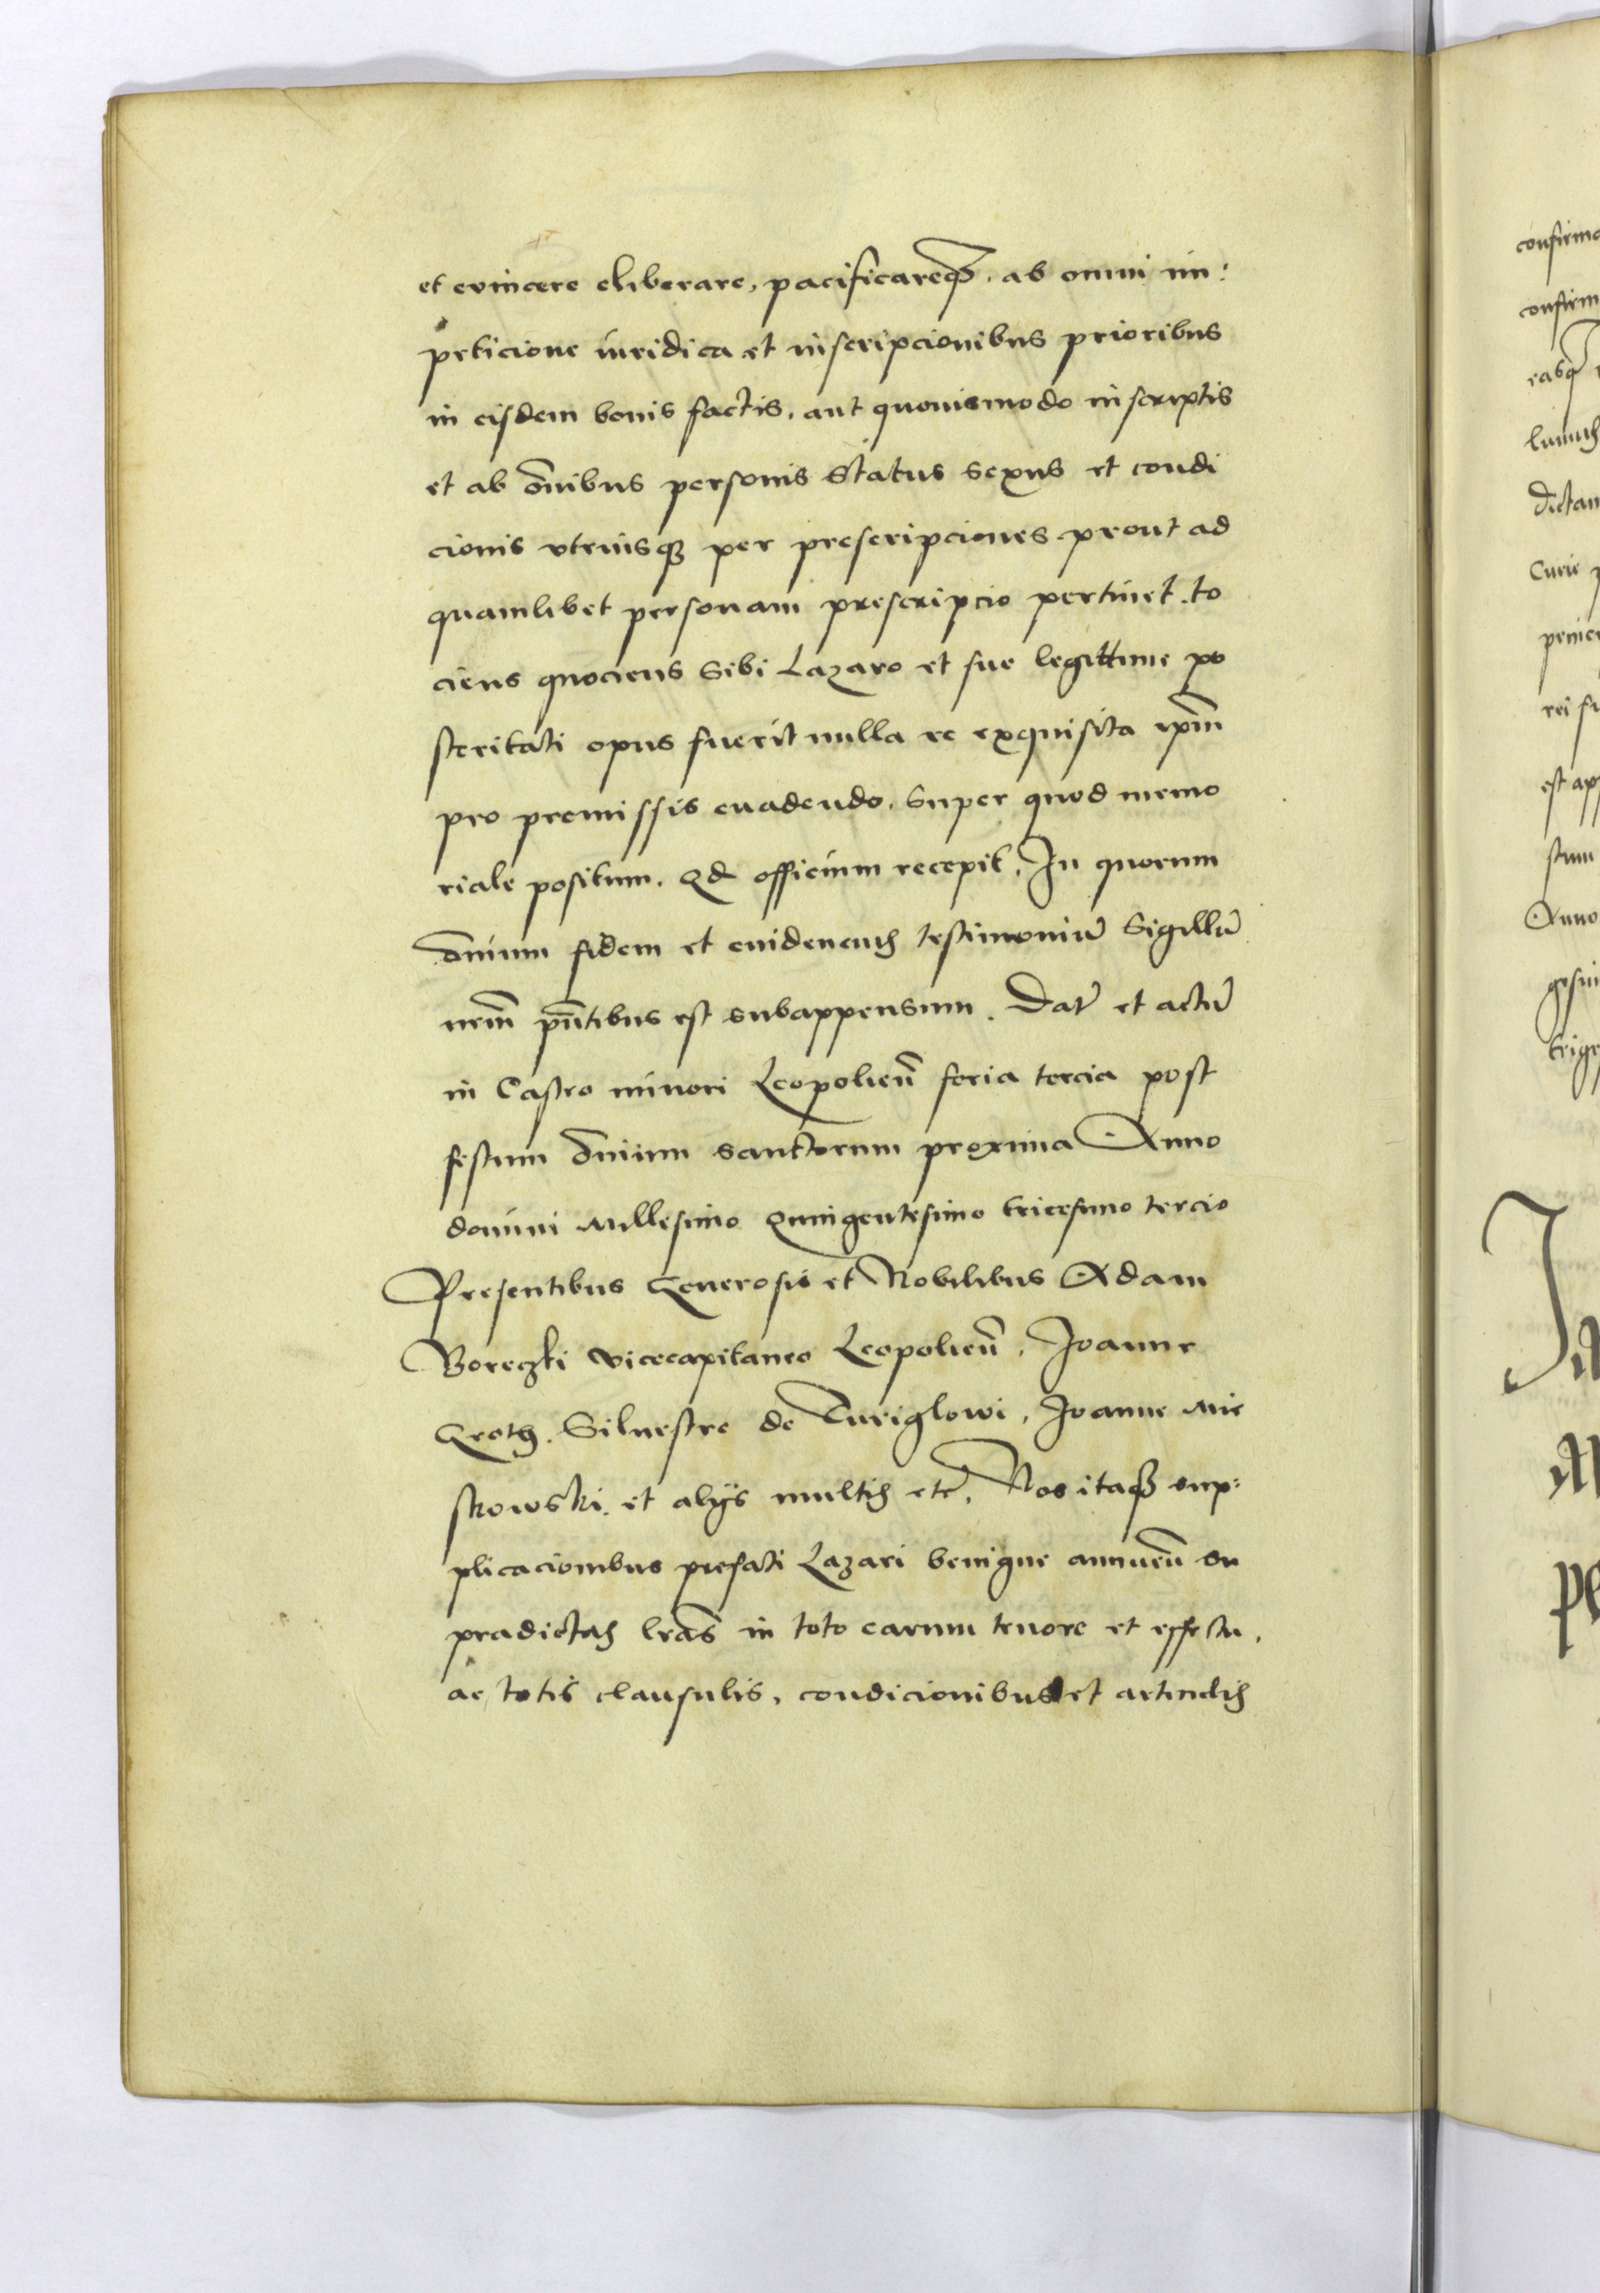 et evincere eliberare, pacificareqꝫ. ab omni im:
peticione iuridica et inscripcionibus prioribus
in eisdem bonis factis. aut quouismodo inscriptis
et ab o͞mibus personis Status sexus et condi
cionis vtriusqꝫ per prescripciones prout ad
quamlibet personam prescripcio pertinet. to
ciens quociens Sibi Lazaro et sue legittime po
steritati opus fuerit nulla re exquisita ip̄m
pro premissis euadendo. Super quod memo
riale positum. Qd officium recepit. In quorum
o͞mium fidem et euidencius testimoniū Sigillū
nr̄m pn̄tibus est subappensum. Datū et actū
in Castro minori Leopolien̄ feria tercia post
festum o͞mium sanctorum proxima Anno
domini Millesimo Quingentesimo tricesimo tercio
Presentibus Generosis et Nobilibus Adam
Boreczki vicecapitaneo Leopolien̄. Joanne
Groth. Siluestro de Turiglowi, Joanne Mie
skowski. et alijs multis etc̄. Nos itaqꝫ sup:
plicacionibus prefati Lazari benigne annuen̄ su
pradictas lr̄as in toto earum tenore et effectu,
ac totis clausulis, condicionibus et articulis
confirm
Anno